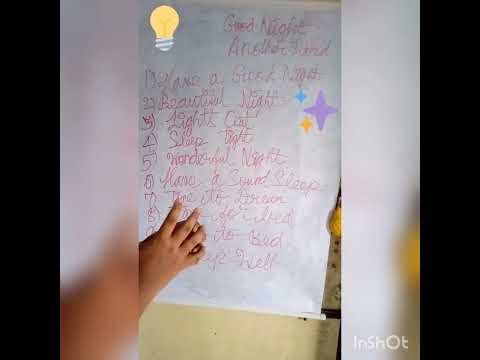 Good Night
Another Word
1) Have a Good Night
2) Beautiful Night
3) Lights Out
4) Sleep Tight
5) Wonderful Night
6) Have a Sound Sleep
7) Time to Dream
8)
to Bed
Well
InShOt